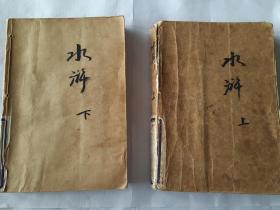 水浒
下
水浒
上